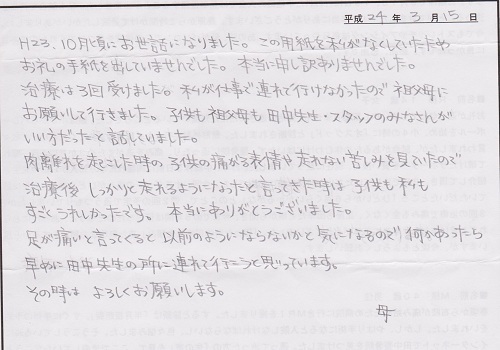 平成24年3月15日
H23.10月頃にお世話になりました。この用紙を私がなくしていた為
お礼の手紙を出していませんでした。本当に申し訳ありませんでした。
治療は3回受けました。私が仕事で連れて行けなかったので祖父母に
お願いして行きました。子供も祖父母も田中先生・スタッフのみなさんが
いい方だったと話していました。
肉離れを起こした時の子供の痛がる表情や走れない苦しみを見ていたので
治療後しっかりと走れるようになったと言ってきた時は子供も私も
すごくうれしかったです。本当にありがとうございました。
足が痛いと言ってくると以前のようにならないかと気になるので何かあったら
早めに田中先生の所に連れて行こうと思っています。
その時はよろしくお願いします。
母